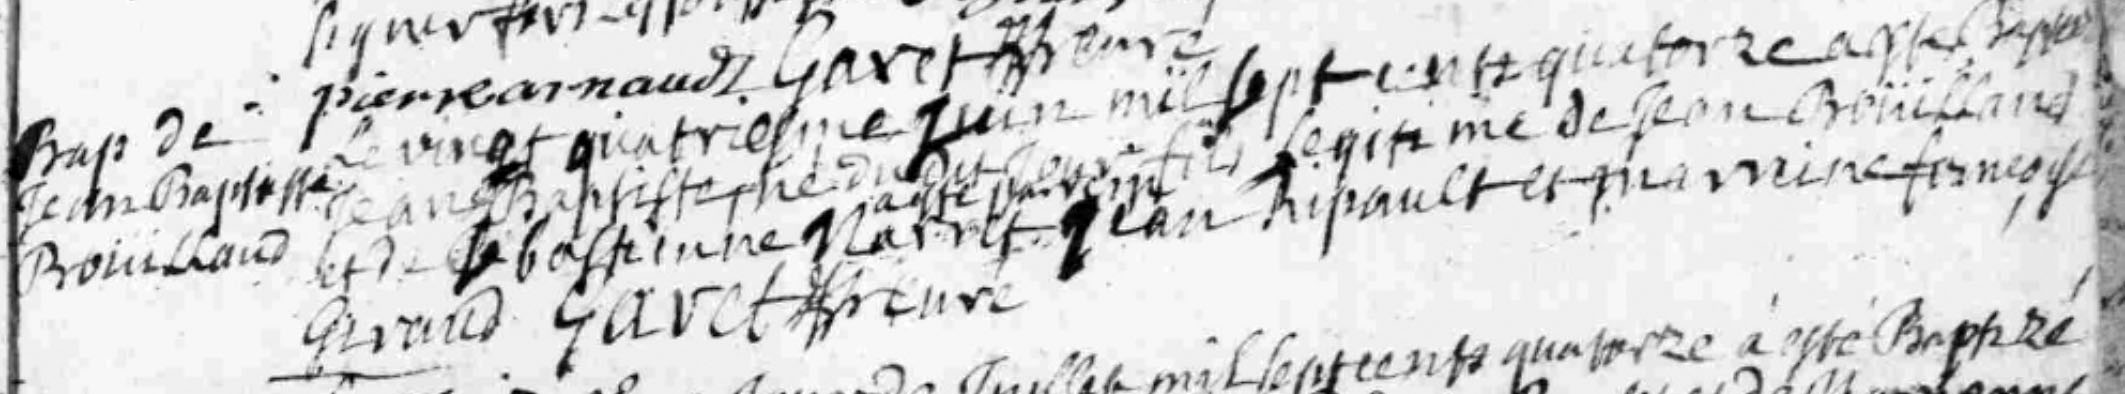 signer
pierre arnaudz Gavet ffreure
Bap de
Jean Baptiste
Boüillaud
Le vingt quatriesme Juin mil sept cents quatorze a esté Baptisé
Jean Baptiste né dudit Jour fils legitime de Jean Boüillaud
et de Sebastienne Narret a esté parein Jean Ripault et marrine
Giraud Gavet ffreure
de Juillet mil sept cents quatorze á esté Baptizé